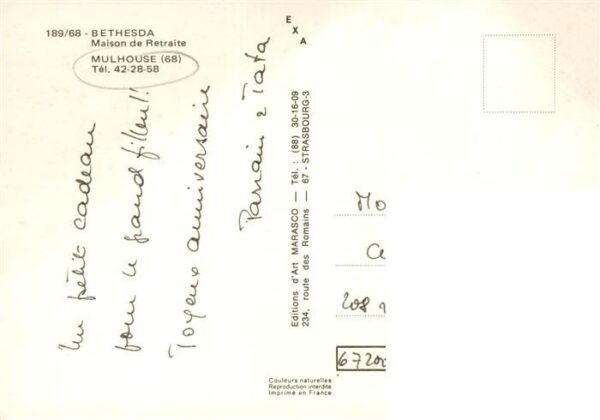 189/68 - BETHESDA
Maison de Retraite
MULHOUSE (68)
Tél. 42-28-58
Un petit cadeau
pour le grand filleul!
Joyeux anniversaire
Parrain & Tata
EXA
Editions d'Art MARASCO — Tél. : (88) 30-16-09
234, route des Romains — 67 - STRASBOURG-3
Mo
208
67200
Couleurs naturelles
Reproduction interdite
Imprimé en France